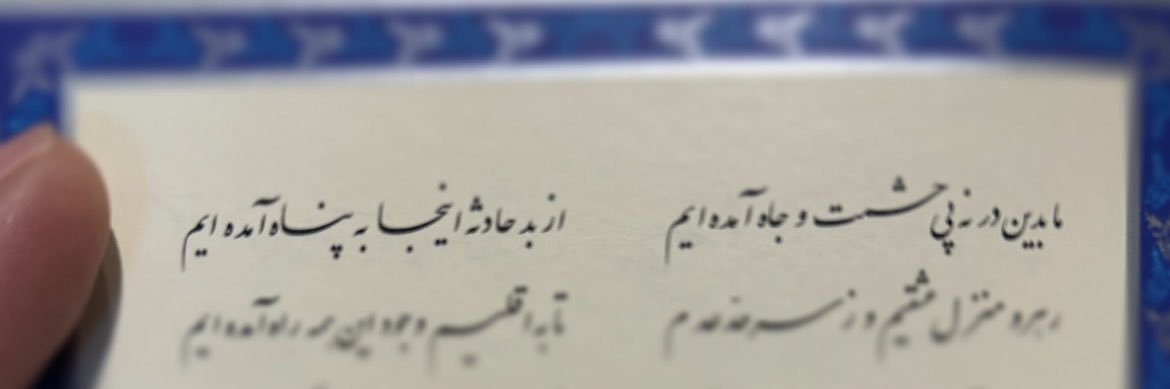 ما بدین در نه پی حشمت و جاه آمده ایم از بد حادثه اینجا به پناه آمده ایم
رهرو منزل عشقیم و ز سر حد عدم تا به اقلیم وجود این همه راه آمده ایم